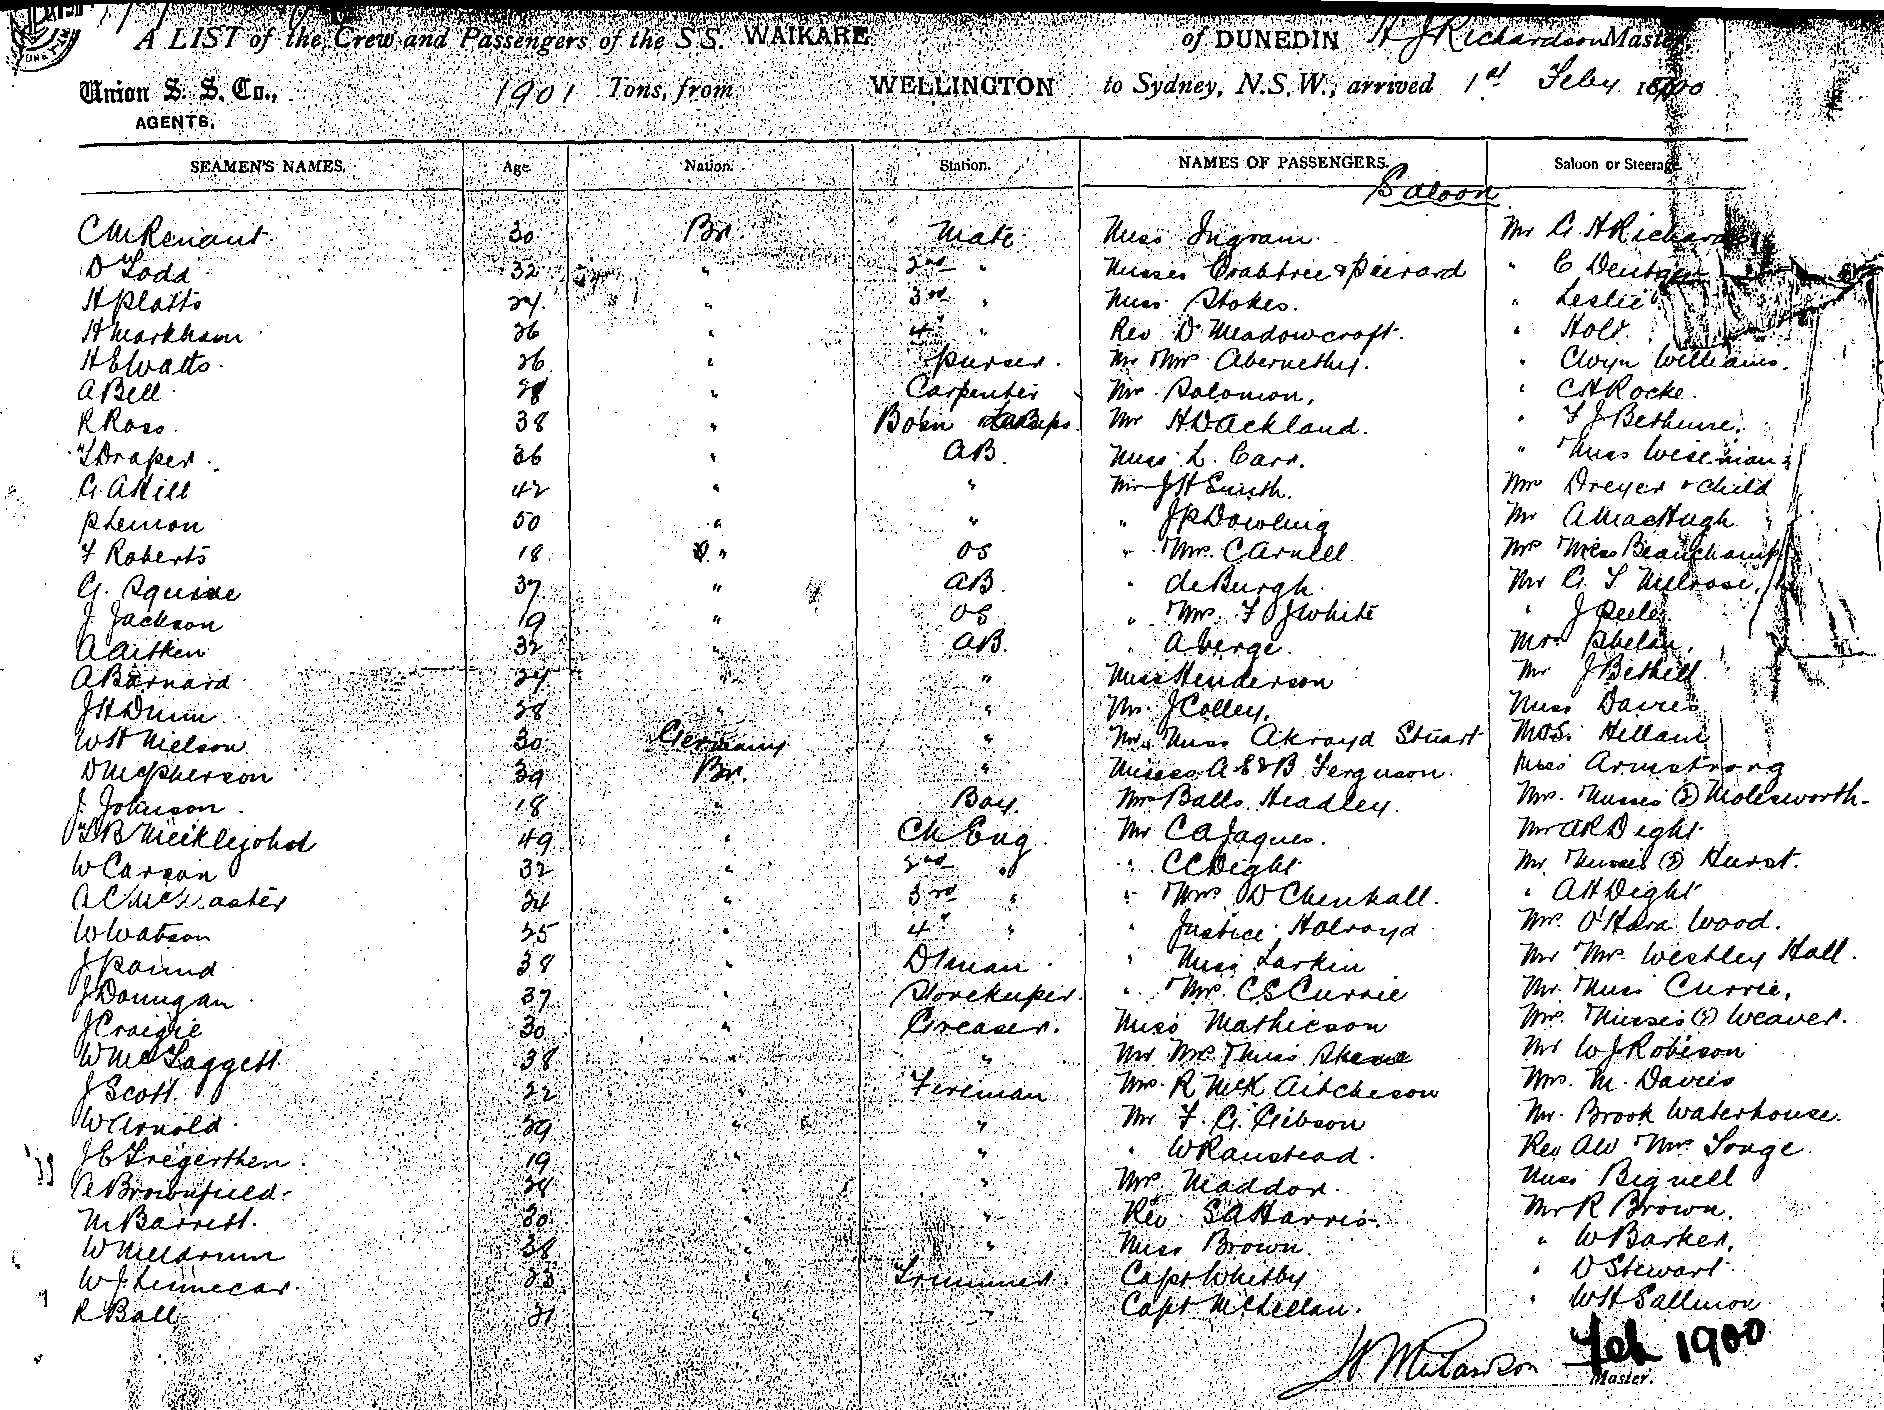 A LIST of the Crew and Passengers of the S.S. WAIKARE of DUNEDIN H J Richardson Master
Union S. S. Co., 1901 Tons, from WELLINGTON to Sydney, N.S.W., arrived 1st Feby 1900
AGENTS,
SEAMEN'S NAMES. Age. Nation. Station. NAMES OF PASSENGERS. Saloon or Steerage
Saloon
30 Br. Mate Miss Ingram Mr G H Richards
D Todd 32 " 2nd " Misses Crabtree & " C
H Platts 24 " 3rd " Miss Stokes. " Leslie
H Markham 26 " 4th " Rev D Meadowcroft. " Holt
H E Watts. 26 " Purser. Mr Mrs Abernethy. " Clwyn Williams.
A Bell 28 " Carpenter Mr Solomon, " C H Rocke.
R Ross. 38 " Bosn Mr H D Ackland. " F J Bethune.
T Draper. 36 " AB. Miss L. Carr. " Miss Wiseman
G. A Hill 42 " " Mr J H Smith. Mrs Dreyer & child
P Lemon 50 " " " J P Dowling Mr A MacHugh
F Roberts 18 " OS " Mrs. C Arnell Mrs Miss Beauchamp
G. Squire 37 " AB. " de Burgh. Mr G. T Melrose,
J Jackson 19 " OS " Mrs. F J White " J Peele
A Aitken 32 " AB. " A Verge. Mrs Phelan.
A Barnard 24 " " Miss Henderson Mr J Bethell
J H Dunn 28 " " Mr. J Colley. Miss Davies
W H Nielson 30 Germany " Mr. Miss Akroyd Stuart Mrs. Hellam
D McPherson 39 Br. " Misses A E & B Ferguson. Miss Armstrong
J Johnson. 18 " Boy. Mr Balls Headley. Mrs. Misses (2) Molesworth.
T B Meiklejohn 49 " Ch Eng. Mr C A Jaques. Mr A R Dight
W Carson 32 " 2nd " " C C Dight Mr. Misses (2) Hurst.
A C McMaster 24 " 3rd " " Mrs D Chenhall. " A H Dight
W Watson 25 " 4th " " Justice Holroyd Mrs. O'Hara Wood.
J Pound 38 " Dkman " Miss Larkin Mr Mrs. Westley Hall.
J Dounigan 37 " Storekeeper. " Mrs. C S Currie Mr. Miss Currie,
J Craigie 30 " Greaser. Miss Mathieson Mrs. Misses (2) Weaver.
W McTaggett 38 " " Mr Mrs Miss Mr W J Robison
J Scott. 22 " Fireman Mrs. R McK Aitcheson Mrs. M. Davies
W Arnold. 29 " " Mr F. G. Gibson Mr. Brook Waterhouse.
J E Tregerthen. 19 " " " W Ranstead. Rev A W Mrs Tonge.
A Brownfield. 28 " " Mrs Maddox. Miss Bignell
M Barrett. 30 " " Rev. S A Harris. Mr R Brown.
W Meldrum 38 " " Miss Brown. " W Barker.
W J Linnecar. 23 " Trimmer. Capt Whitby " D Stewart
R Ball 21 " " Capt McLellan. " W H Sallmon
H J Richardson Feb 1900
Master.